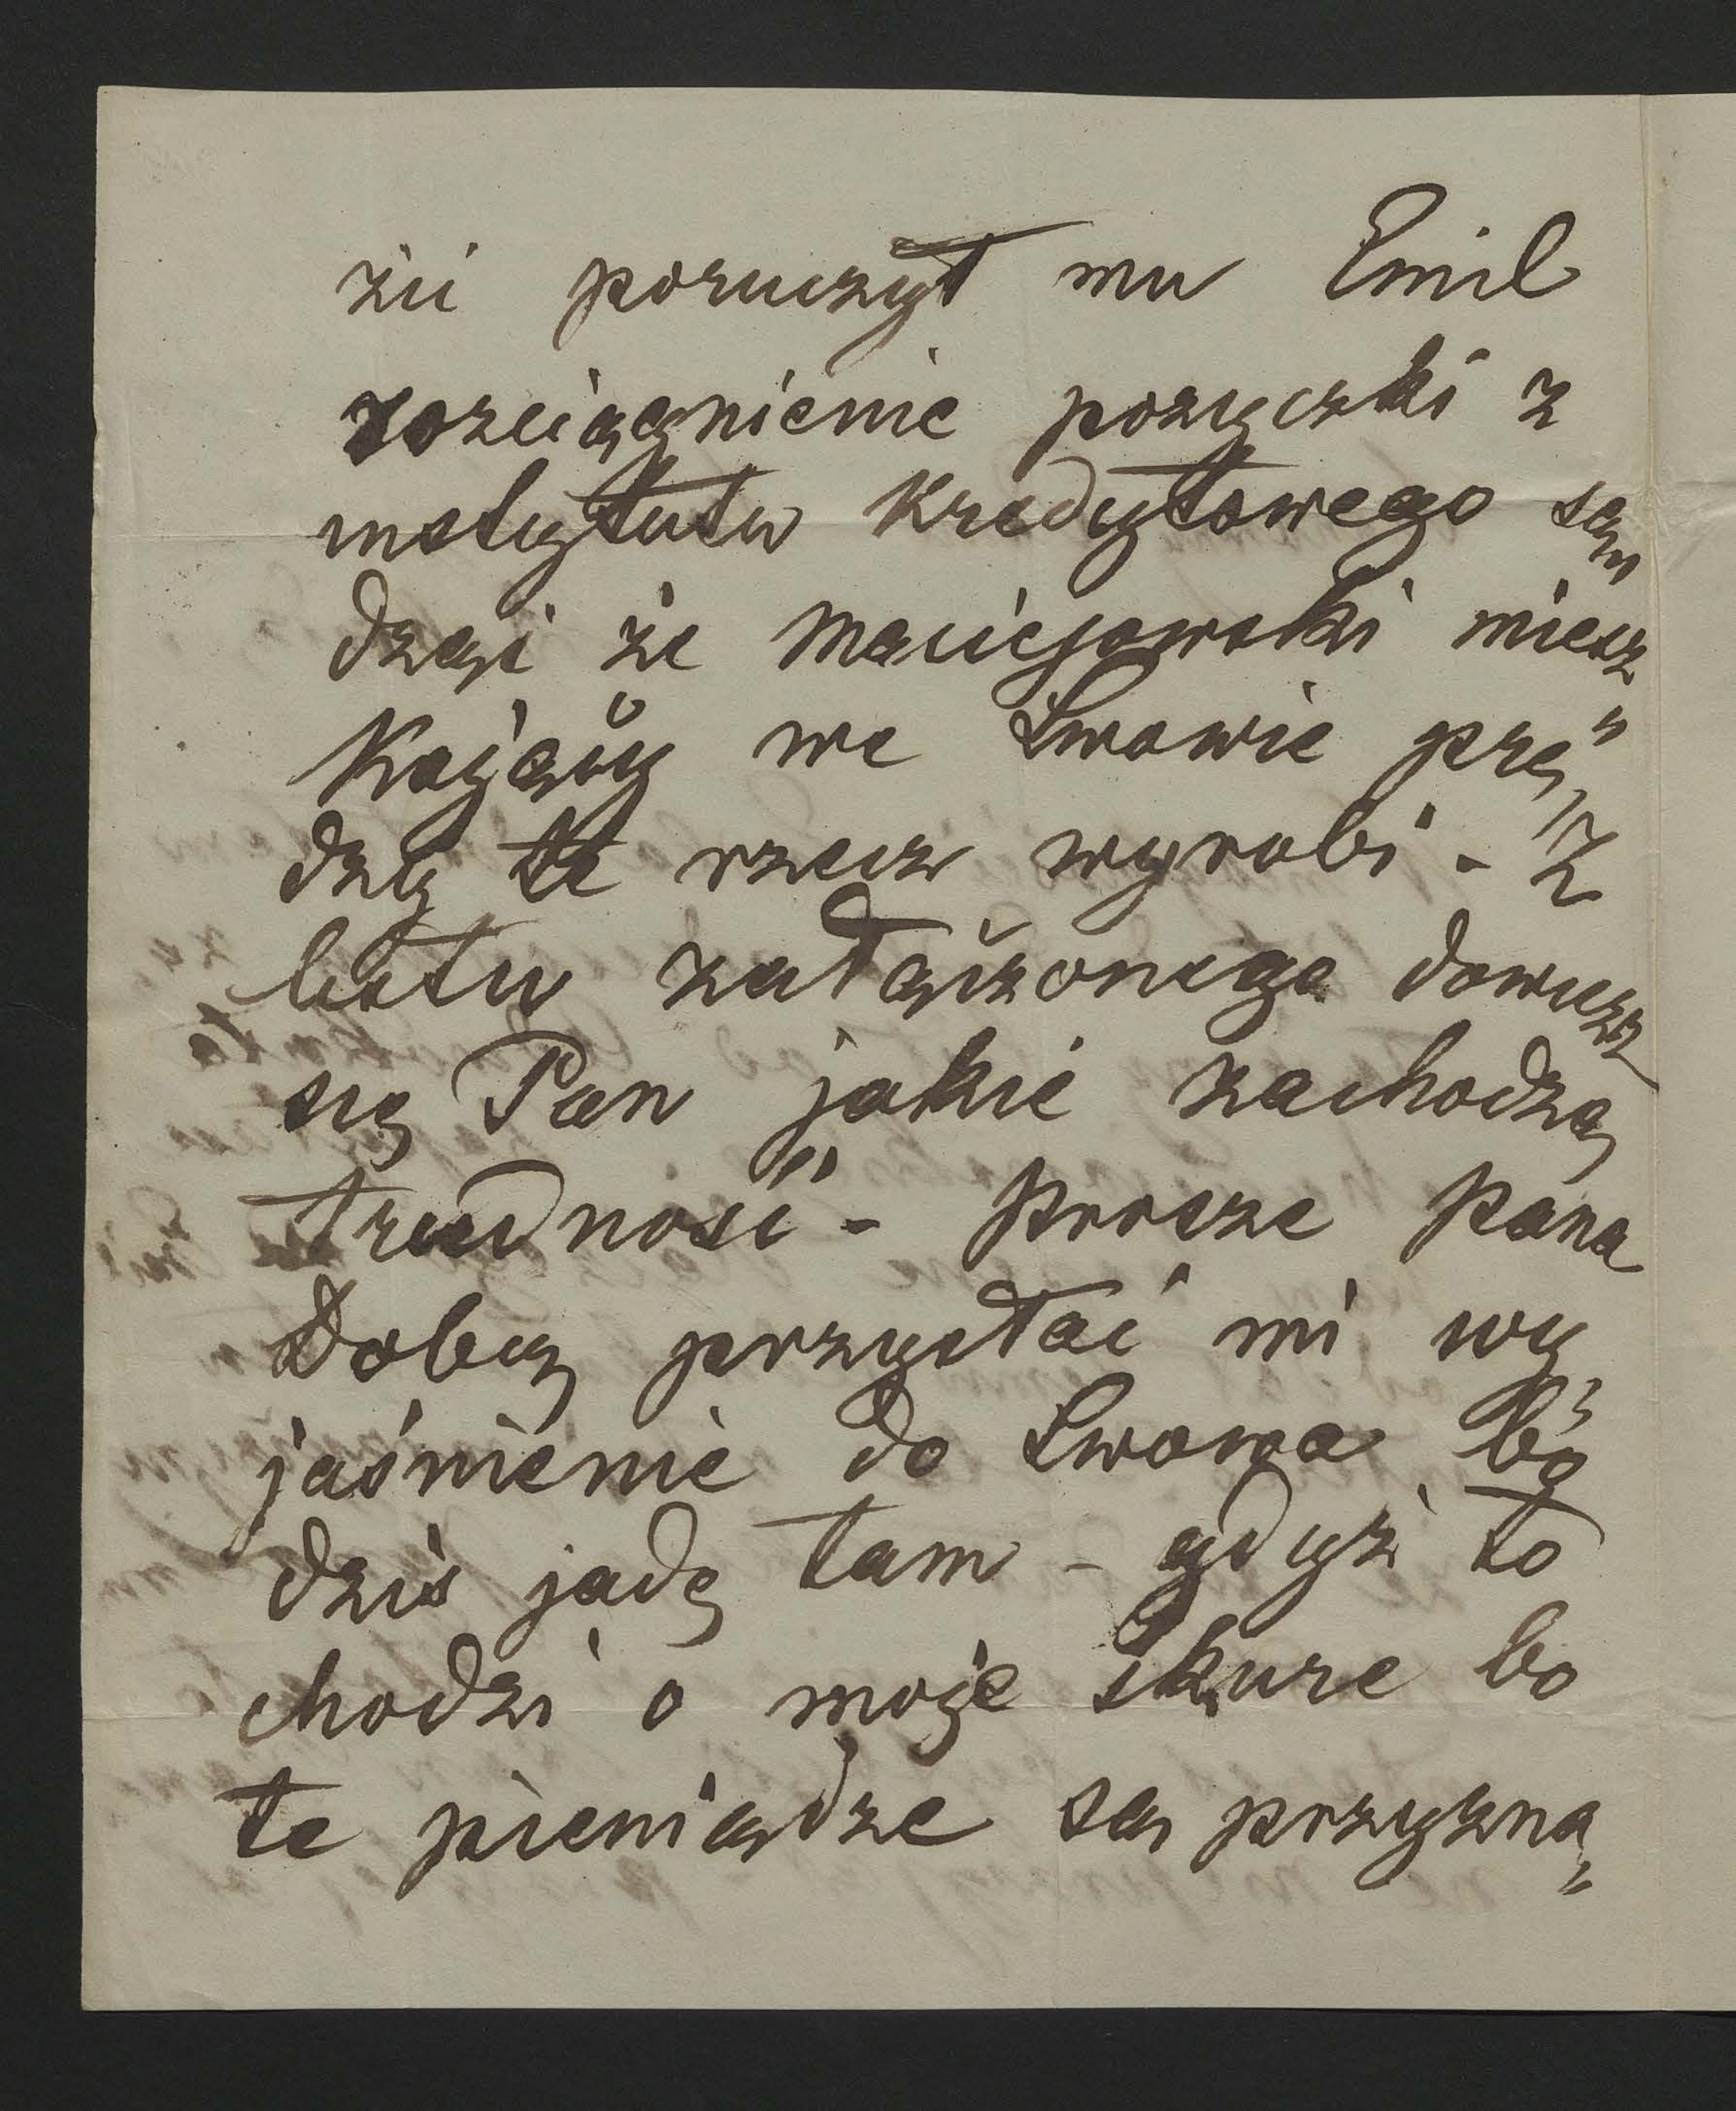 żé poruczył mu Emil
rozciągnienie pozyczki z
instytutu kredytowego sąn
dząc że Maciejowski miesz
kający we Lwowie prę„
dzéj te rzecz wyrobi - Z
listu załączonego dowiesz
się Pan jakie zachodzą
trudnośći - Prosze Pana
Dobr. przysłać mi wy„
jaśnienie do Lwowa bo
dziś jadę tam - gdyż to
chodzi o moje skure bo
te pieniądze są przyzna„